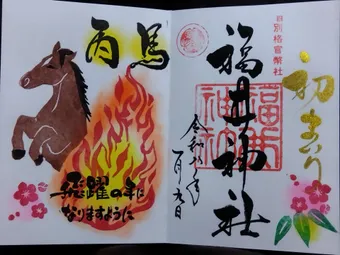 初まいり
別格官幣社
福井神社
福井神社
令和八年
一月九日
丙
馬
飛躍の年に
なりますように